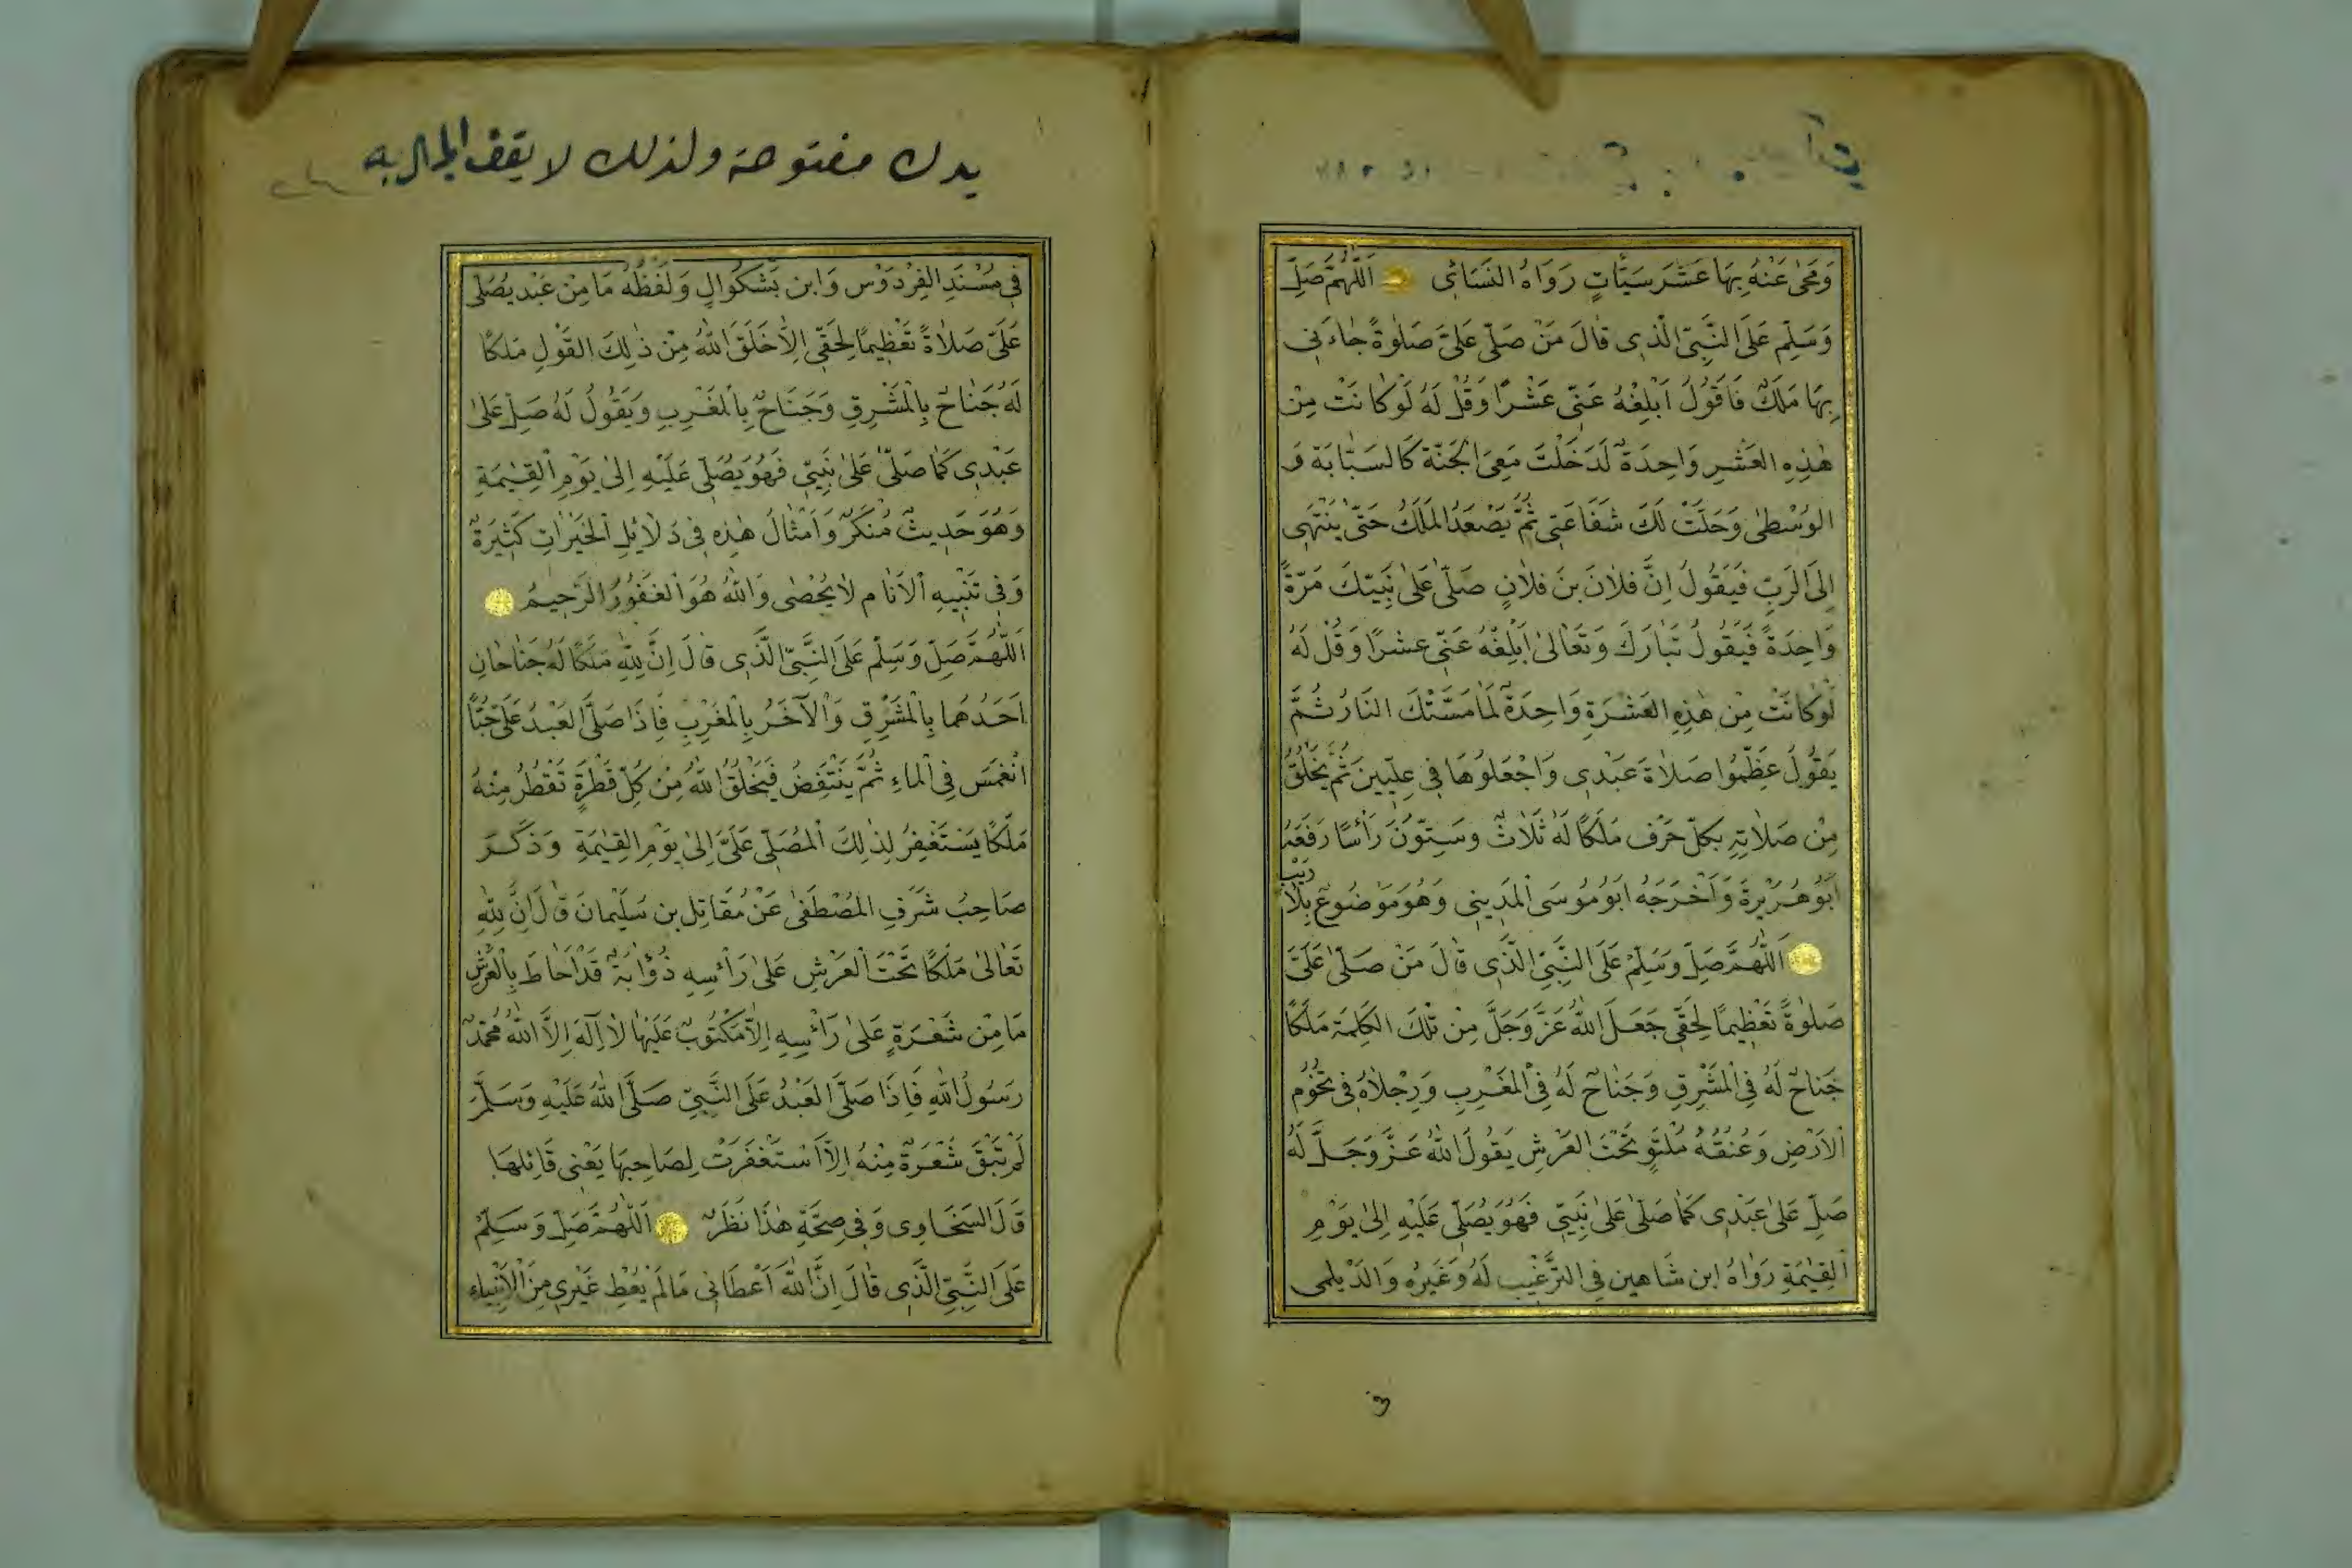 وَمَحٰى عَنْهُ بِهَا عَشَرَ سَيِّئَاتٍ رَوَاهُ النَّسَائِى اَللّٰهُمَّ صَلِّ
وَسَلِّمْ عَلَى النَّبِىِّ الَّذِى قَالَ مَنْ صَلّٰى عَلَىَّ صَلٰوةً جَاءَنِى
بِهَا مَلَكٌ فَاَقُولُ اَبْلِغْهُ عَنِّى عَشْرًا وَقُلْ لَهُ لَوْ كَانَتْ مِنْ
هٰذِهِ العَشْرِ وَاحِدَةٌ لَدَخَلْتَ مَعِىَ الْجَنَّةَ كَالسَّبَّابَةِ وَ
الوُسْطٰى وَحَلَّتْ لَكَ شَفَاعَتِى ثُمَّ يَصْعَدُ المَلَكُ حَتّٰى يَنْتَهِى
اِلَى الرَبِّ فَيَقُولُ اِنَّ فلَانَ بنَ فلَانٍ صَلّٰى عَلٰى نَبِيّكَ مَرّةً
وَاحِدَةً فَيَقُولُ تَبَارَكَ وَتَعَالٰى اَبْلِغْهُ عَنِّى عشرًا وَقُلْ لَهُ
لَوْ كَانَتْ مِنْ هٰذِهِ العَشْرَةِ وَاحِدَةٌ لَمَا مَسَّتْكَ النَارُ ثُمَّ
يَقُولُ عَظِّمُوا صَلَاةَ عَبْدِى وَاجْعَلوُهَا فِى عِلِّيِينَ ثُمّ يَخْلُقُ
مِنْ صَلَاتِهِ بِكلِّ حَرْفٍ مَلَكًا لَهُ ثَلَاثٌ وسَتِتُّونَ رَأْسًا رَفَعَهُ
اَبُو هُرَيْرةَ وَاَخْرَجَهُ ابَو مُوسَى الْمَدِينِى وَهُوَ مَوْضُوعٌ بِلَا رَيْب
اَللّٰهُمَّ صَلِّ وَسَلِّمْ عَلَى النَّبِىِّ الَّذِى قَالَ مَنْ صَلّٰى عَلَىَّ
صَلٰوةً تَعْظِيمًا لِحَقِّى جَعَلَ اللّٰهُ عَزَّ وَجَلَّ مِنْ تِلْكَ الكَلِمَةِ مَلَكًا
جَنَاحٌ لَهُ فِى الْمَشْرِقِ وَجَنَاحٌ لَهُ فِى الْمَغْرِبِ وَرِجْلَاهُ فِى تُخُومِ
الْاَرْضِ وَعُنُقُهُ مُلْتَوٍ تَحْتَ العَرْشِ يَقُولُ اللّٰهُ عَزَّ وَجَلَّ لَهُ
صَلِّ عَلٰى عَبْدِى كَمَا صَلّٰى عَلٰى نَبِيِّى فَهُوَ يُصَلِّى عَلَيْهِ اِلٰى يَوْمِ
الْقِيٰمَةِ رَوَاهُ ابن شَاهين فِى التّرْغيب لَهُ وَغَيرُهُ وَالدَيلمى
يدك مفتوحة ولذلك لا يقف المال به
فِى مُسْنَدِ الفِرْدَوْس وَابن بَشْكوَالٍ وَلَفْظُهُ مَا مِنْ عَبْدٍ يُصَلِّى
عَلَىَّ صَلَاةً تَعْظِيمًا لِحَقِّى اِلَّا خَلَقَ اللّٰهُ مِنْ ذٰلِكَ القَوْلِ مَلَكًا
لَهُ جَنَاحٌ بِالْمَشْرِقِ وَجَنَاحٌ بِالْمَغْرِبِ وَيَقُولُ لَهُ صَلِّ عَلٰى
عَبْدِى كَمَا صَلّٰى عَلٰى نَبِيِّى فَهُوَ يُصَلِّى عَلَيْهِ اِلٰى يَوْمِ الْقِيٰمَةِ
وَهُوَ حَدِيثٌ مُنْكَرٌ وَاَمْثَالُ هٰذِهِ فِى دَلَائِلِ الْخَيْرَاتِ كَثِيرَةٌ
وَفِى تَنْبِيهِ الْاَنَامِ لَا يُحْصٰى وَاللّٰهُ هُوَ الْغَفُورُ الرَّحِيمُ
اَللّٰهُمَّ صَلِّ وَسَلِّمْ عَلَى النَّبِىِّ الَّذِى قَالَ اِنَّ لِلّٰهِ مَلَكًا لَهُ جَنَاحَانِ
اَحَدُهُما بِالْمَشْرِقِ وَالْآخَرُ بِالْمَغْرِبِ فَاِذَا صَلَّى العَبْدُ عَلَىَّ حُبًّا
انْغَمَسَ فِى الْمَاءِ ثُمَّ يَنْتَفِضُ فَيَخْلُقُ اللّٰهُ مِنْ كُلِّ قَطْرَةٍ تَقْطُرُ مِنْهُ
مَلَكًا يَسْتَغْفِرُ لِذٰلِكَ الْمُصَلِّى عَلَىَّ اِلٰى يَوْمِ القِيٰمَةِ وَذَكَرَ
صَاحِبُ شَرَفِ المُصْطَفٰى عَنْ مُقَاتِل بن سَلَيْمانَ قَالَ اِنَّ لِلّٰهِ
تَعَالٰى مَلَكًا تَحْتَ الْعَرْشِ عَلٰى رَأْسِهِ ذُؤَابَةٌ قَدْ اَحَاطَ بِالْعَرْشِ
مَا مِنْ شَعْرَةٍ عَلٰى رَأْسِهِ اِلَّا مَكْتُوبٌ عَلَيْهَا لَا اِلٰهَ اِلَّا اللّٰهُ مُحَمّدٌ
رَسُولُ اللّٰهِ فَاِذَا صَلَّى العَبْدُ عَلَى النَّبِىِّ صَلَّى اللّٰهُ عَلَيْهِ وَسَلَّمَ
لَمْ تَبْقَ شَعْرَةٌ مِنْهُ اِلَّا اسْتَغْفَرَتْ لِصَاحِبِهَا يَعْنِى قَائِلهَا
قَالَ السَخَاوِى وَفِى صِحَّةِ هٰذَا نَظَرٌ اَللّٰهُمَّ صَلِّ وَسَلِّمْ
عَلَى النَّبِىِّ الَّذِى قَالَ اِنَّ اللّٰهَ اَعْطَانِى مَا لَمْ يُعْطِ غَيْرِى مِنَ الْاَنْبِيَاءِ